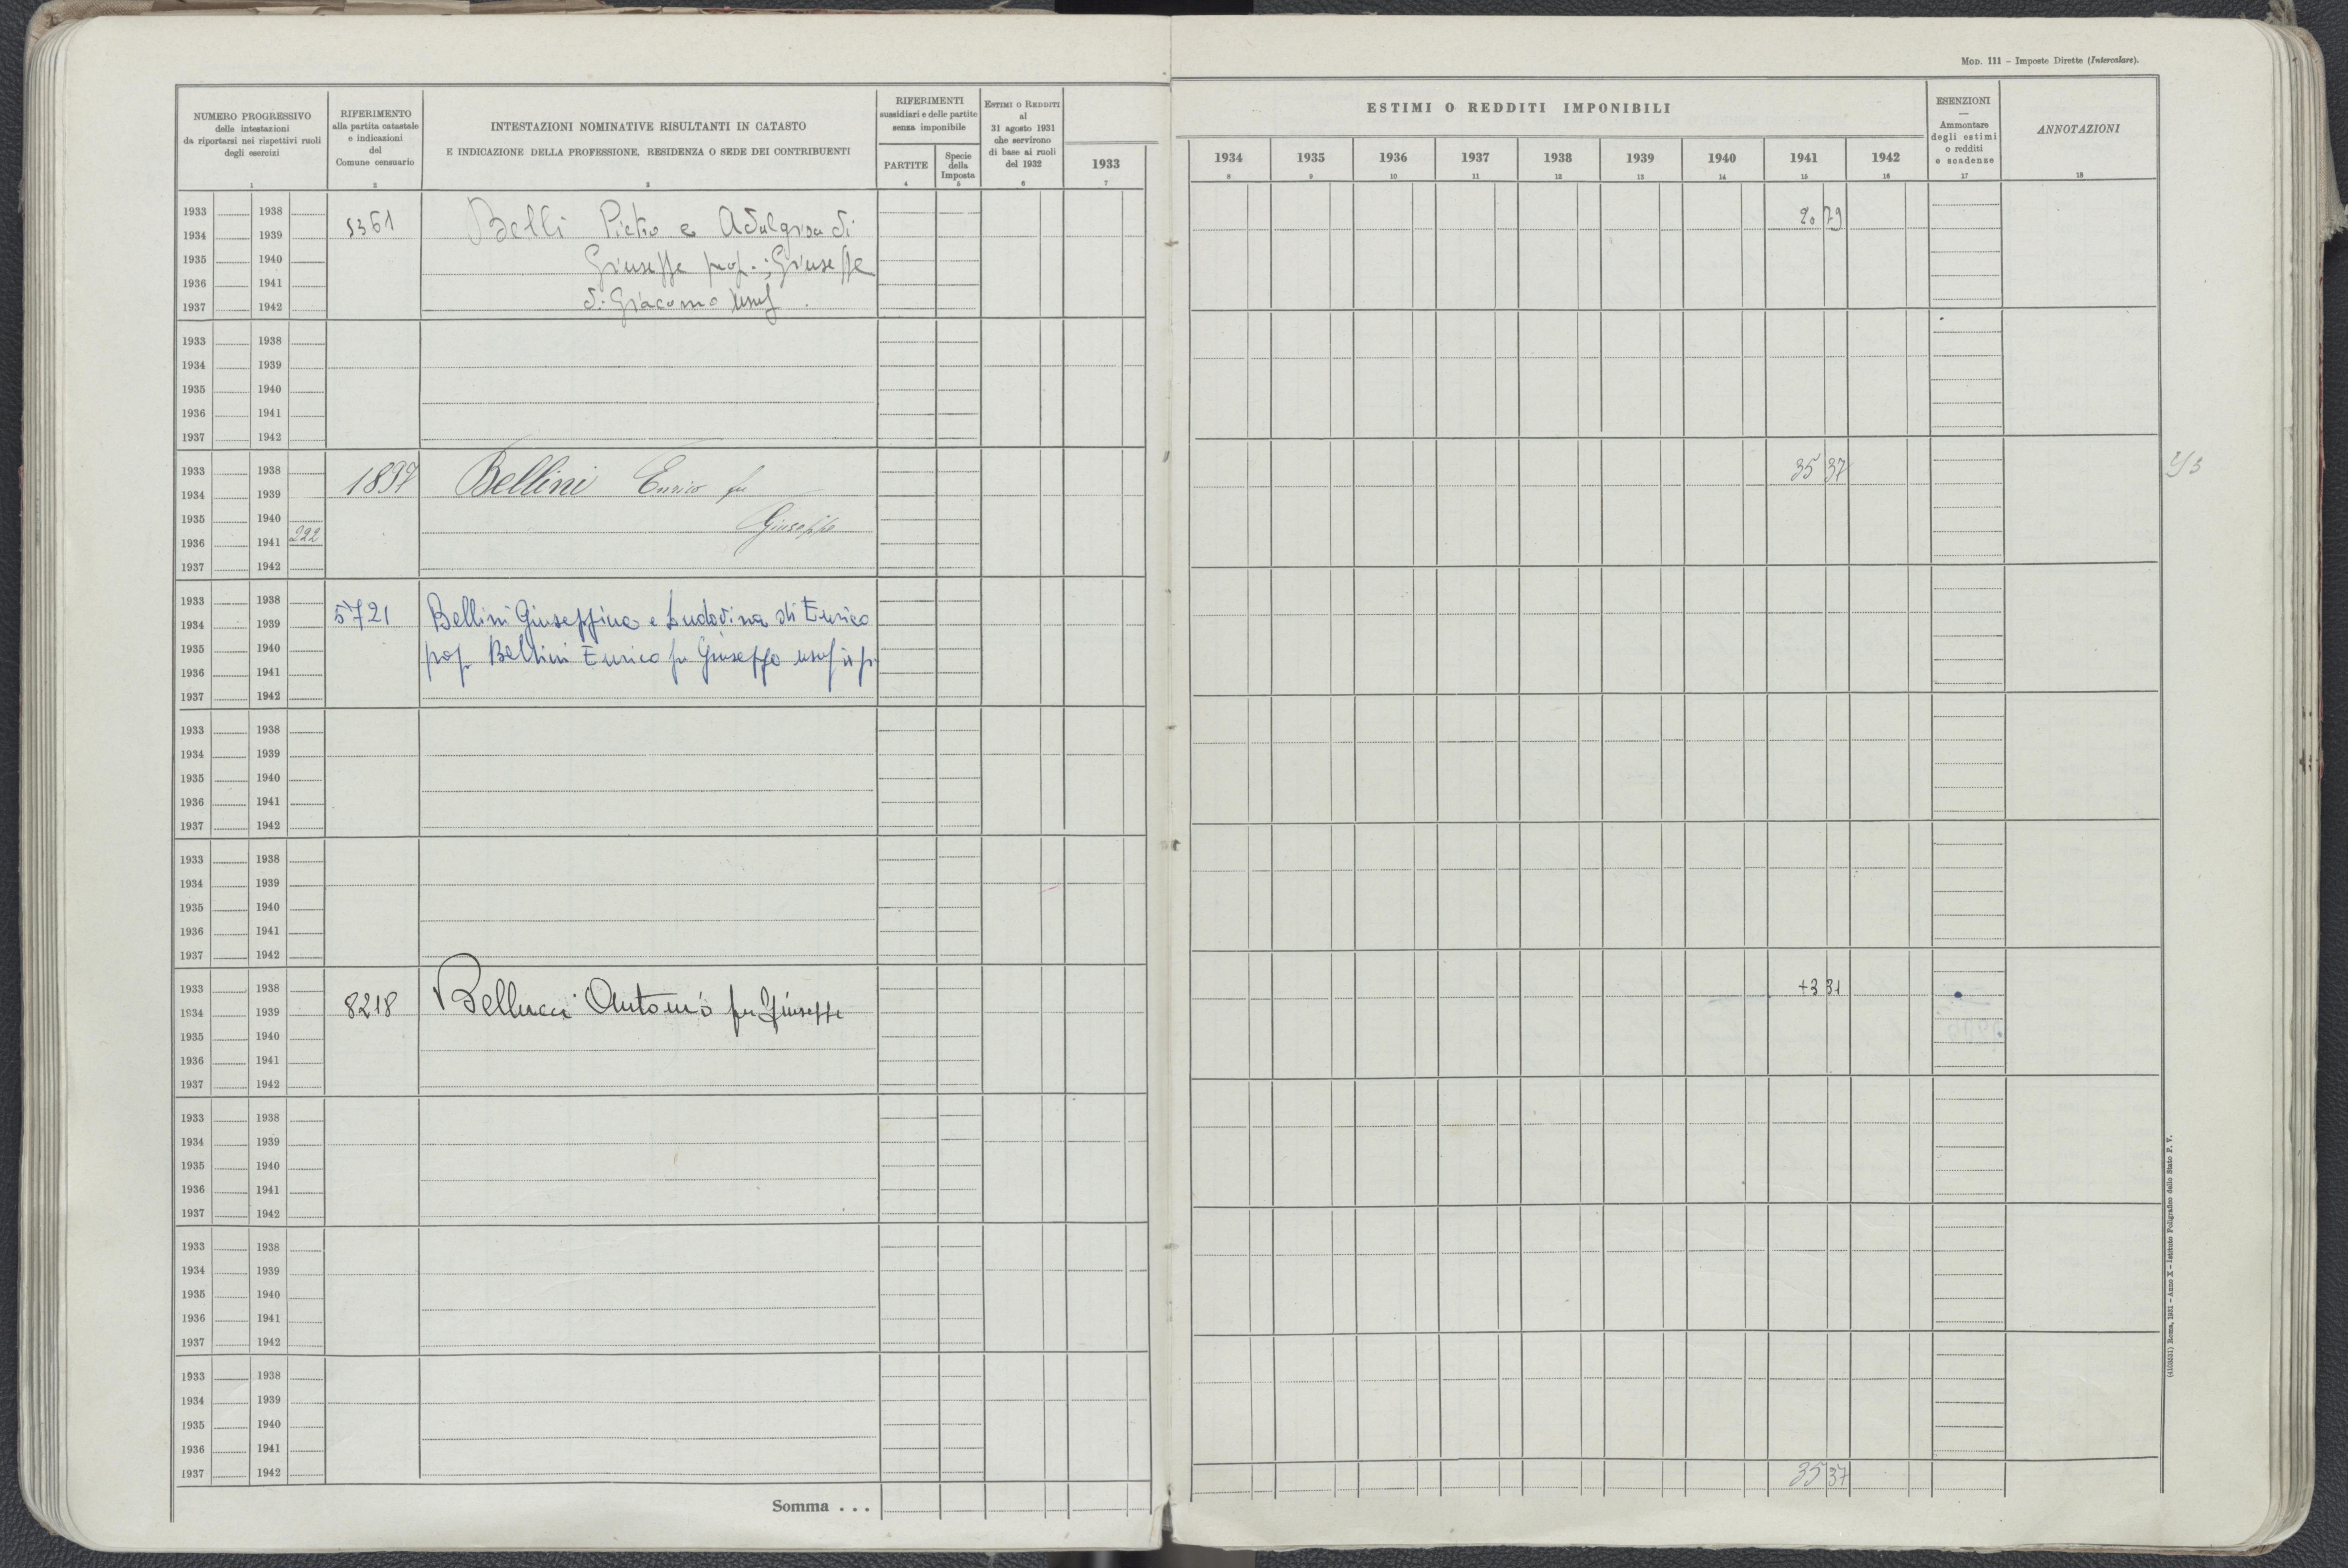 MOD. 111 – Imposte Dirette (Intercalare).
NUMERO PROGRESSIVO
delle intestazioni
da riportarsi nei rispettivi ruoli
degli esercizi
1
RIFERIMENTO
alla partita catastale
e indicazioni
del
Comune censuario
2
INTESTAZIONI NOMINATIVE RISULTANTI IN CATASTO
E INDICAZIONE DELLA PROFESSIONE, RESIDENZA O SEDE DEI CONTRIBUENTI
3
RIFERIMENTI
sussidiari e delle partite
senza imponibile
PARTITE
4
Specie
della
Imposta
5
ESTIMI O REDDITI
al
31 agosto 1931
che servirono
di base ai ruoli
del 1932
6
1933
7
ESTIMI O REDDITI IMPONIBILI
1934 1935 1936 1937 1938 1939 1940 1941 1942
8 9 10 11 12 13 14 15 16
ESENZIONI
—
Ammontare
degli estimi
o redditi
e scadenze
17
ANNOTAZIONI
18
1933 1938
1934 1939
1935 1940
1936 1941
1937 1942
5361
Belli Pietro e Adalgisa di
Giuseppe prop.; Giuseppe
di Giacomo usuf.
20 79
1933 1938
1934 1939
1935 1940
1936 1941
1937 1942
1933 1938
1934 1939
1935 1940
1936 1941 222
1937 1942
1897
Bellini Enrico fu
Giuseppe
35 37
1933 1938
1934 1939
1935 1940
1936 1941
1937 1942
5721
Bellini Giuseppina e Ludovina di Enrico
prop Bellini Enrico fu Giuseppe usuf
1933 1938
1934 1939
1935 1940
1936 1941
1937 1942
1933 1938
1934 1939
1935 1940
1936 1941
1937 1942
1933 1938
1934 1939
1935 1940
1936 1941
1937 1942
8218
Bellucci Antonio fu Giuseppe
+3 31
1933 1938
1934 1939
1935 1940
1936 1941
1937 1942
1933 1938
1934 1939
1935 1940
1936 1941
1937 1942
1933 1938
1934 1939
1935 1940
1936 1941
1937 1942
Somma . . .
35 37
(4103631) Roma, 1931 – Anno X – Istituto Poligrafico dello Stato P. V.